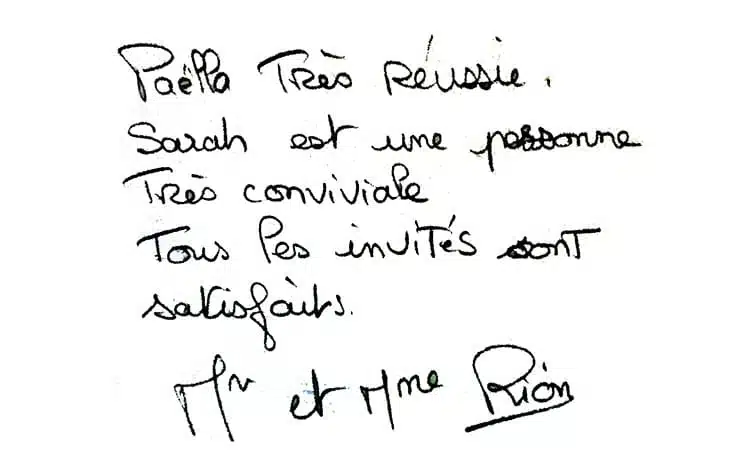 Paëlla Très réussie.
Sarah est une personne
Très conviviale
Tous les invités sont
satisfaits.
Mr et Mme Rion